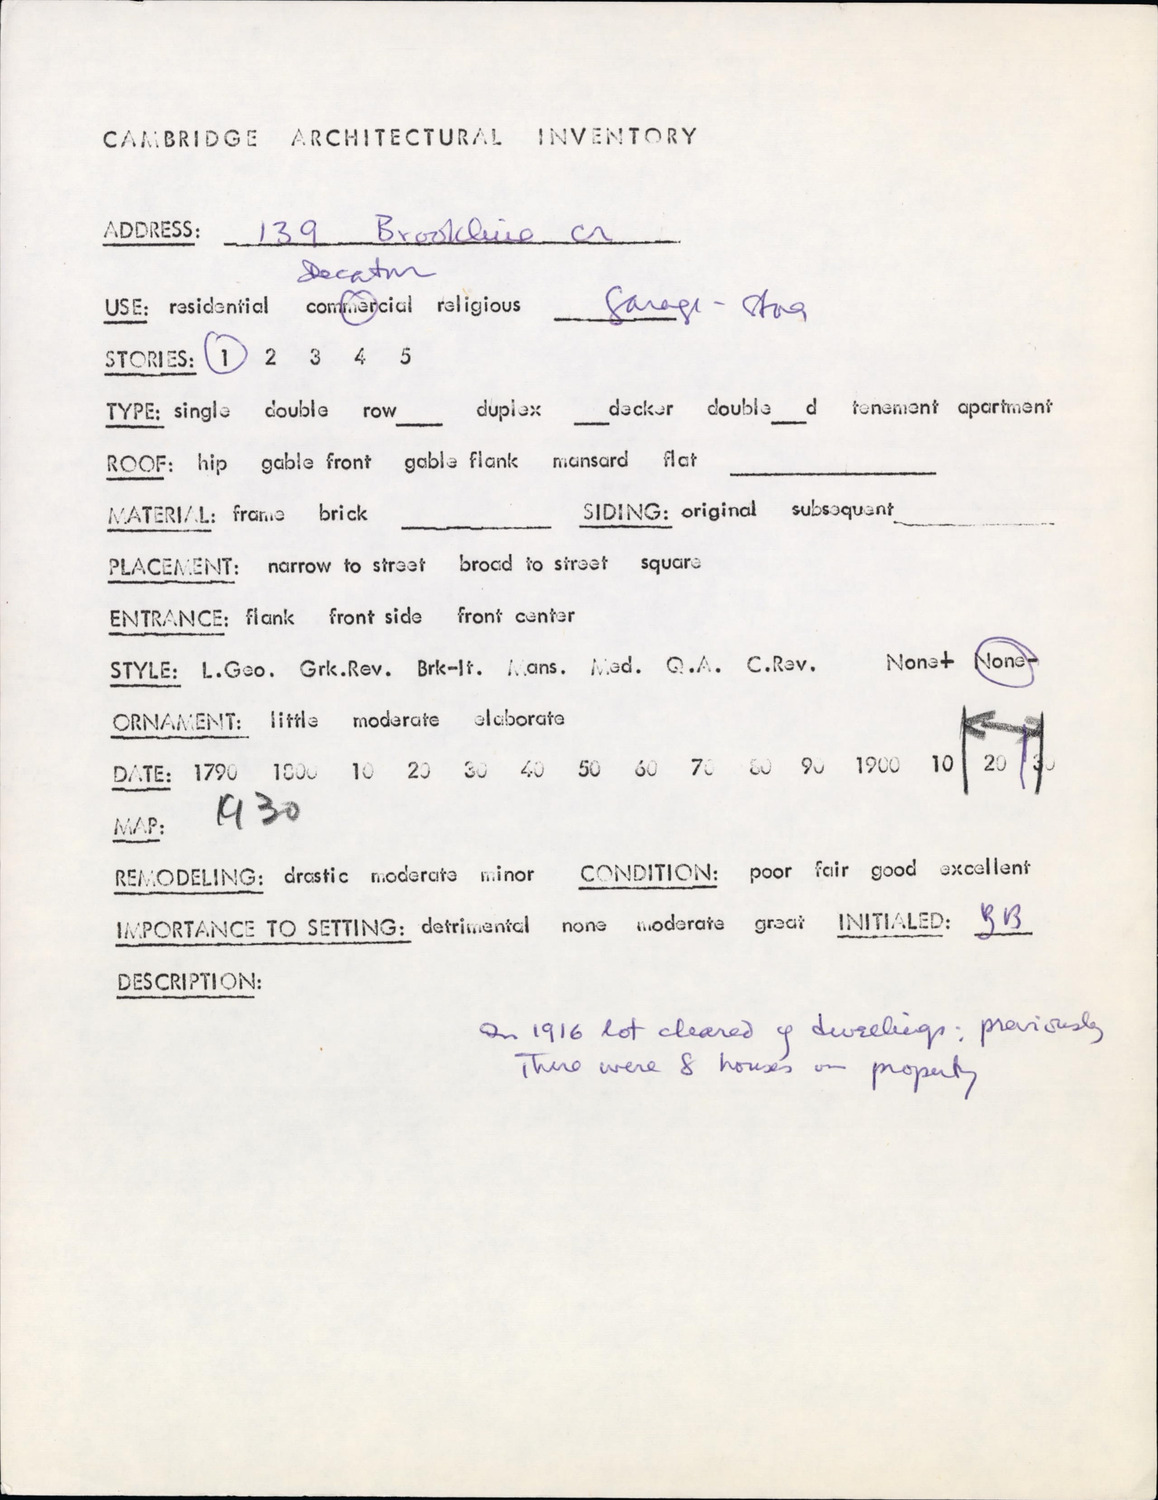 CAMBRIDGE ARCHITECTURAL INVENTORY
ADDRESS: 139 Brookline cr
Decatur
USE: residential commercial religious Garage - Stor
STORIES: 1 2 3 4 5
TYPE: single double row___ duplex ___decker double___d tenement apartment
ROOF: hip gable front gable flank mansard flat
MATERIAL: frame brick ___ SIDING: original subsequent
PLACEMENT: narrow to street broad to street square
ENTRANCE: flank front side front center
STYLE: L.Geo. Grk.Rev. Brk-It. Mans. Med. Q.A. C.Rev. None+ None-
ORNAMENT: little moderate elaborate
DATE: 1790 1800 10 20 30 40 50 60 70 80 90 1900 10 20 30
MAP: 1930
REMODELING: drastic moderate minor CONDITION: poor fair good excellent
IMPORTANCE TO SETTING: detrimental none moderate great INITIALED: BB
DESCRIPTION:
In 1916 lot cleared of dwellings; previously
There were 8 houses on property